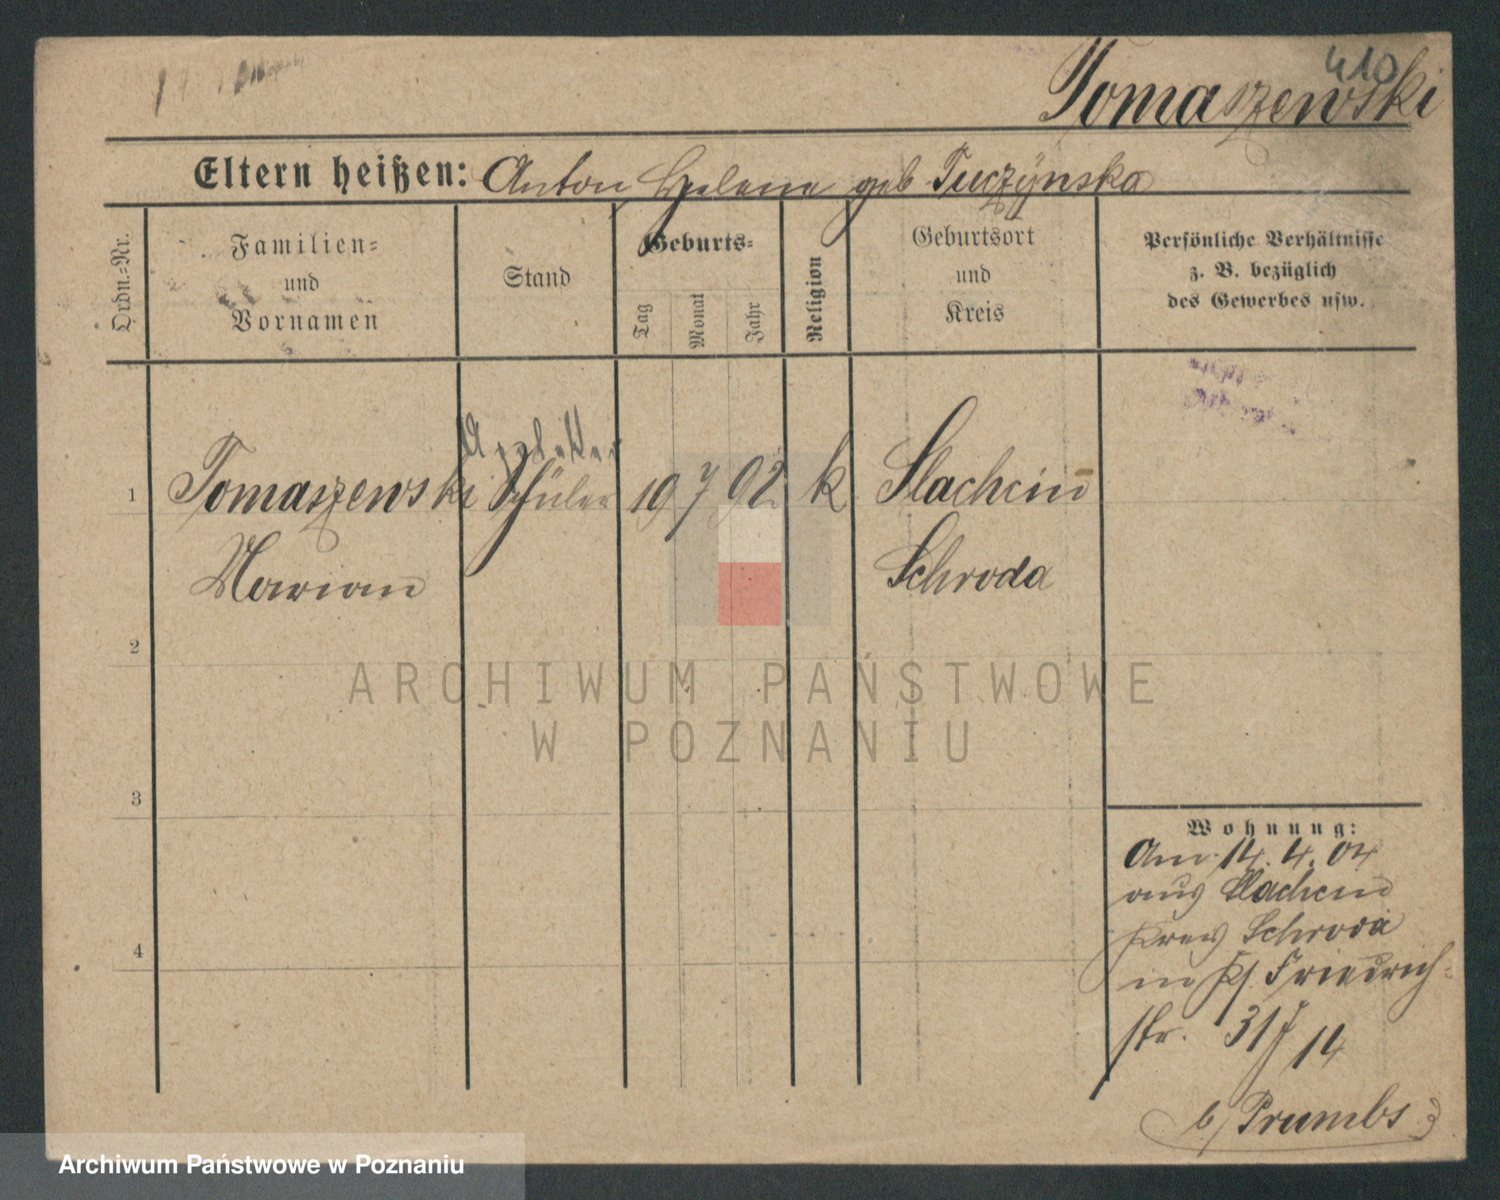 410
Tomaszewski
Eltern heißen: Anton Helene geb Tuczynska
Ordn.-Nr.
Familien-
und
Vornamen
Stand
Geburts-
Tag
Monat
Jahr
Religion
Geburtsort
und
Kreis
Persönliche Verhältnisse
z. B. bezüglich
des Gewerbes usw.
Arbeiter
1 Tomaszewski Schüler 19 7 92 k Slachcin
Marian Schroda
2
ARCHIWUM PAŃSTWOWE
W POZNANIU
3
Wohnung:
Am 14. 4. 04
aus Slachcin
Kreis Schroda
in Friedrich-
str. 31 14
4
b/ Prumbs
Archiwum Państwowe w Poznaniu